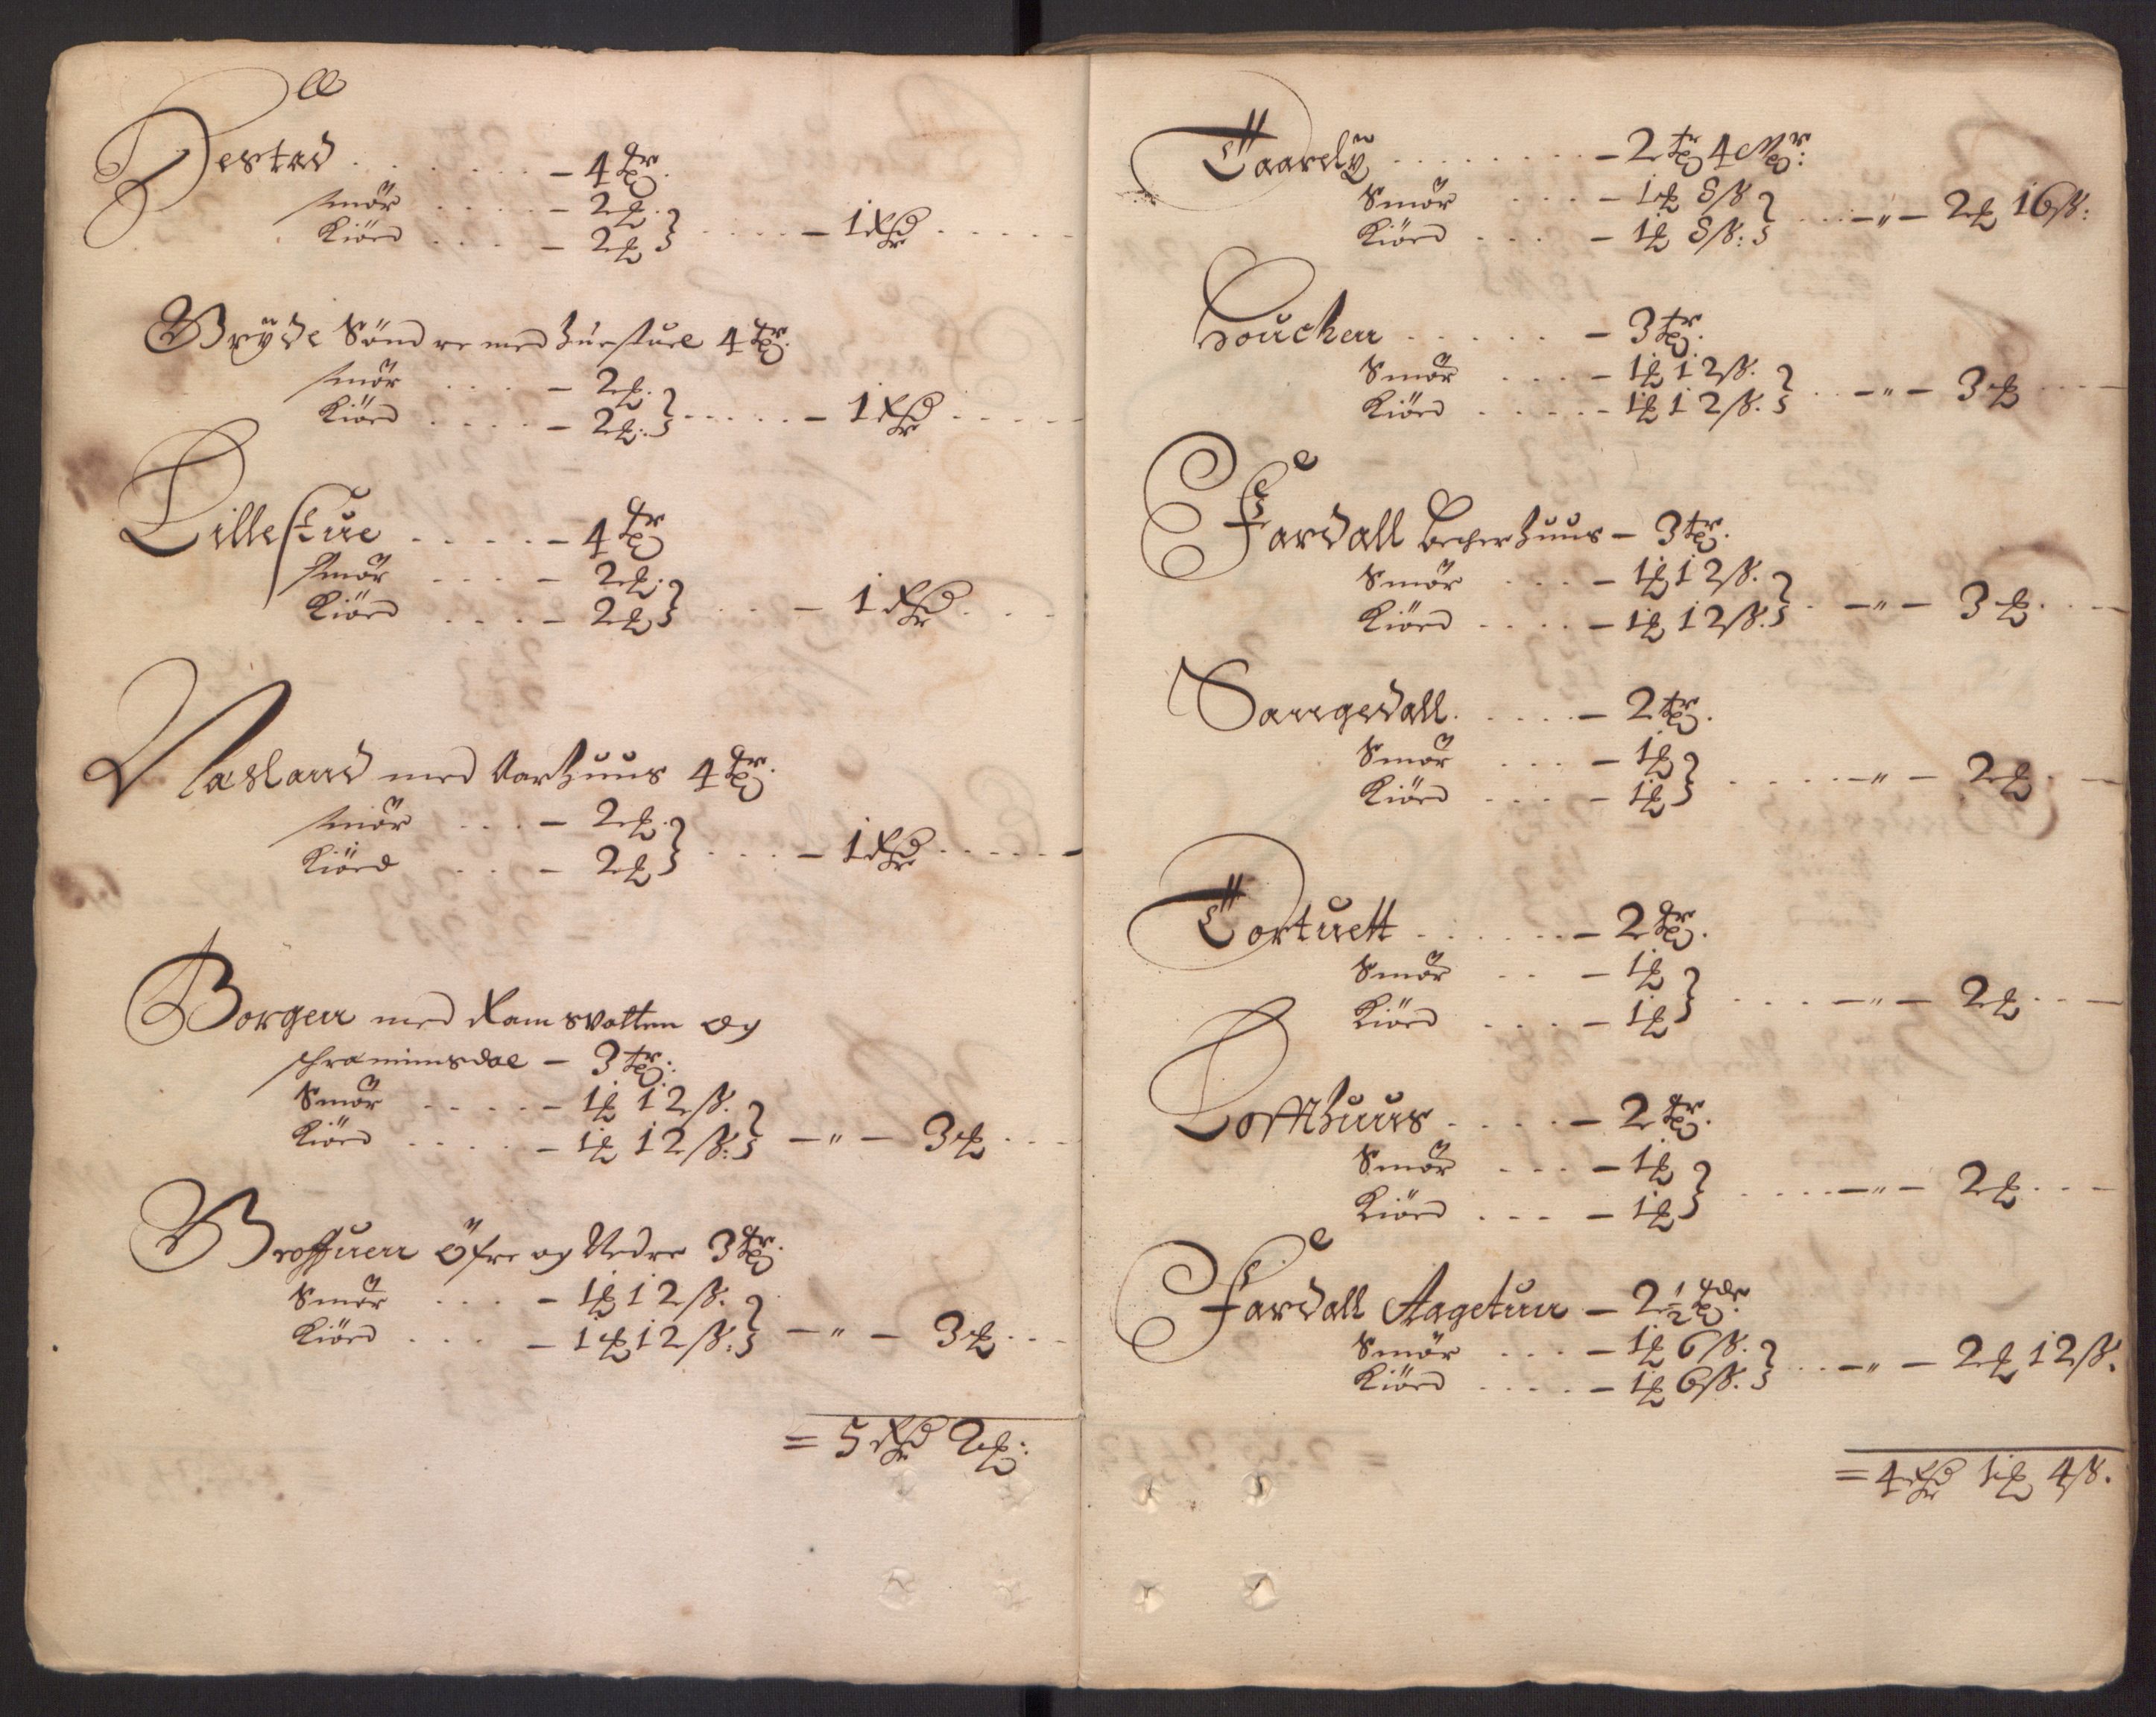 Hestad . . . . . . . – 4 tr
smör . . . . – 2 ꝑ.
Kiörd . . . . – 2 ꝑ } . . . . – 1 Rd . . . . .
Bryde Söndre med Huustuel 4 tr.
smör . . . . – 2 ꝑ.
Kiörd . . . . – 2 ꝑ. } . . . . . – 1 Rd . . . . .
Lillestue . . . . . – 4 tr
smör . . . . – 2 ꝑ.
Kiörd . . . . – 2 ꝑ } . . . – 1 Rd . . . .
Nasland med Aarhuus 4 tr.
smör . . . – 2 ꝑ.
Kiörd . . . – 2 ꝑ } . . . . – 1 Rd . . . . . –
Borgen med Ramsvatten og
schramimsdae – 3 tr:
Smör . . . . . – 1 ꝑ 12 ß.
Kiörd . . . . . – 1 ꝑ 12 ß: } – " – 3 ꝑ . . . .
Broffuen Öfre og Nedre 3 tr.
Smör . . . . – 1 ꝑ 12 ß.
Kiörd . . . . – 1 ꝑ 12 ß: } – " – 3 ꝑ . . .
= 5 Rd 2 ꝑ:
Taarely . . . . . . . . – 2 tr 4 Mr:
Smör . . . – 1 ꝑ 8 ß
Kiörd . . . – 1 ꝑ 8 ß: } . . . – " – 2 ꝑ 16 ß:
Houchen . . . . . . – 3 tr.
Smör . . . . – 1 ꝑ 12 ß.
Kiörd . . . . . – 1 ꝑ 12 ß. } . . – " – 3 ꝑ . . . . –
Fardall Becherhuus – 3 tr.
Smör . . . . – 1 ꝑ 12 ß.
Kiörd . . . . – 1 ꝑ 12 ß. } . – " – 3 ꝑ. . . . –
Sangedall . . . . . – 2 tr.
Smör . . . – 1 ꝑ
Kiörd . . . – 1 ꝑ } . . . . . – " – 2 ꝑ. . . –
Tortuett . . . . . . – 2 tr.
Smör . . – 1 ꝑ
Kiörd . . . . – 1 ꝑ } . . . . – " – 2 ꝑ . . . –
Loffthuus . . . . . – 2 tr.
Smör . . . – 1 ꝑ
Kiörd . . . – 1 ꝑ } . . . . . – " – 2 ꝑ . . . –
Fardall Aagetun – 2 1/2 tdr.
Smör . . . . – 1 ꝑ 6 ß.
Kiörd . . . . – 1 ꝑ 6 ß. } . . . – " – 2 ꝑ 12 ß.
= 4 Rd 1 ꝑ 4 ß.